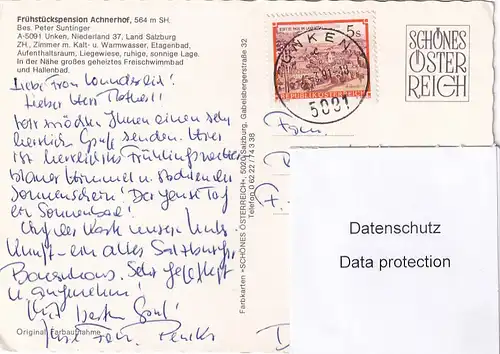 Frühstückspension Achnerhof, 564 m SH.
Bes. Peter Suntinger
A-5091 Unken, Niederland 37, Land Salzburg
ZH., Zimmer m. Kalt- u. Warmwasser, Etagenbad,
Aufenthaltsraum, Liegewiese, ruhige, sonnige Lage.
In der Nähe großes geheiztes Freischwimmbad
und Hallenbad.
Liebe Frau
Lieber Herr
wir möchten Ihnen einen sehr
herzlich Gruß senden. Hier
ist herrliches Frühlingswetter
blauer Himmel u. strahlender
Sonnenschein! Der ganze Tag
ein Sonnenbad!
Auf der Karte unsere Unter-
kunft - ein altes Salzburger
Bauernhaus. Sehr gepflegt
u. angenehm!
Mit besten Gruß!
Ihre Fam.
Original Farbaufnahme
Farbkarten »SCHÖNES ÖSTERREICH«, 5020 Salzburg, Gabelsbergerstraße 32
Telefon 0 62 22 / 74 3 38
5 S
REPUBLIK ÖSTERREICH
UNKEN
5091
SCHÖNES
ÖSTER
REICH
Fam.
Datenschutz
Data protection